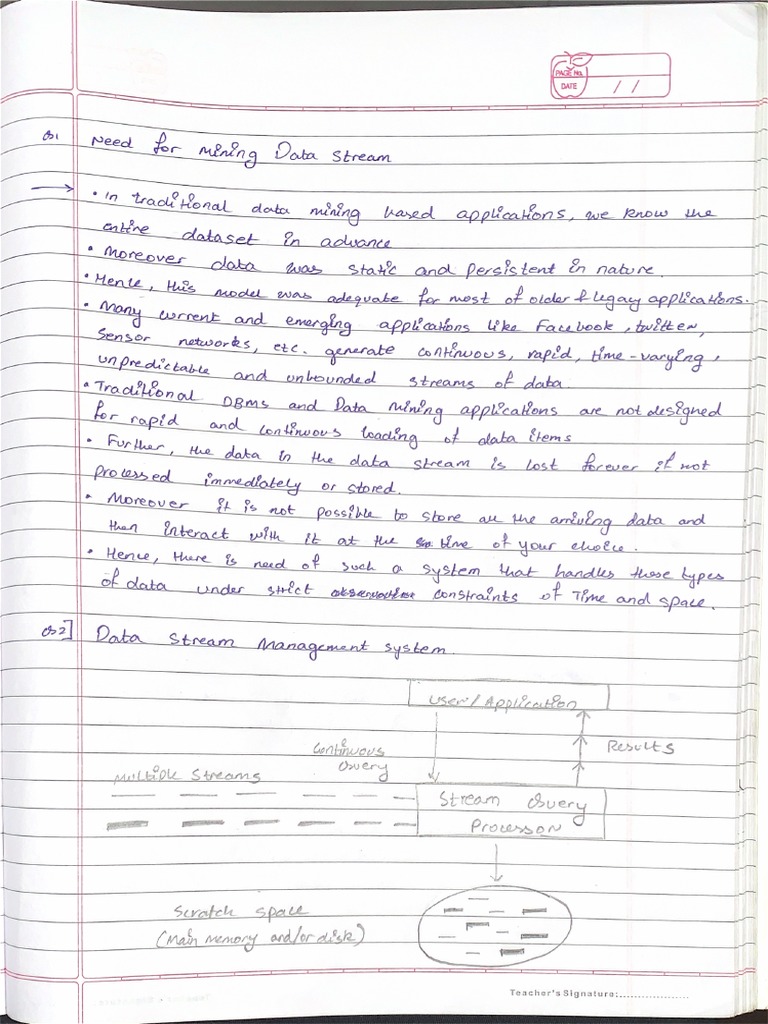 PAGE No.
DATE / /
Q1 Need for mining Data Stream
→ • In traditional data mining based applications, we know the
entire dataset in advance
• Moreover data was static and persistent in nature.
• Hence, this model was adequate for most of older & legacy applications.
• Many current and emerging applications like Facebook, twitter,
sensor networks, etc. generate continuous, rapid, time-varying,
unpredictable and unbounded streams of data
• Traditional DBMS and Data mining applications are not designed
for rapid and continuous loading of data items
• Further, the data in the data stream is lost forever if not
processed immediately or stored.
• Moreover it is not possible to store all the arriving data and
then interact with it at the time of your choice.
• Hence, there is need of such a system that handles these types
of data under strict constraints of Time and space.
Q2] Data Stream Management system.
User/Application
Continuous
Query
Results
Multiple Streams
Stream Query
Processor
Scratch space
(Main memory and/or disk)
Teacher's Signature:...................